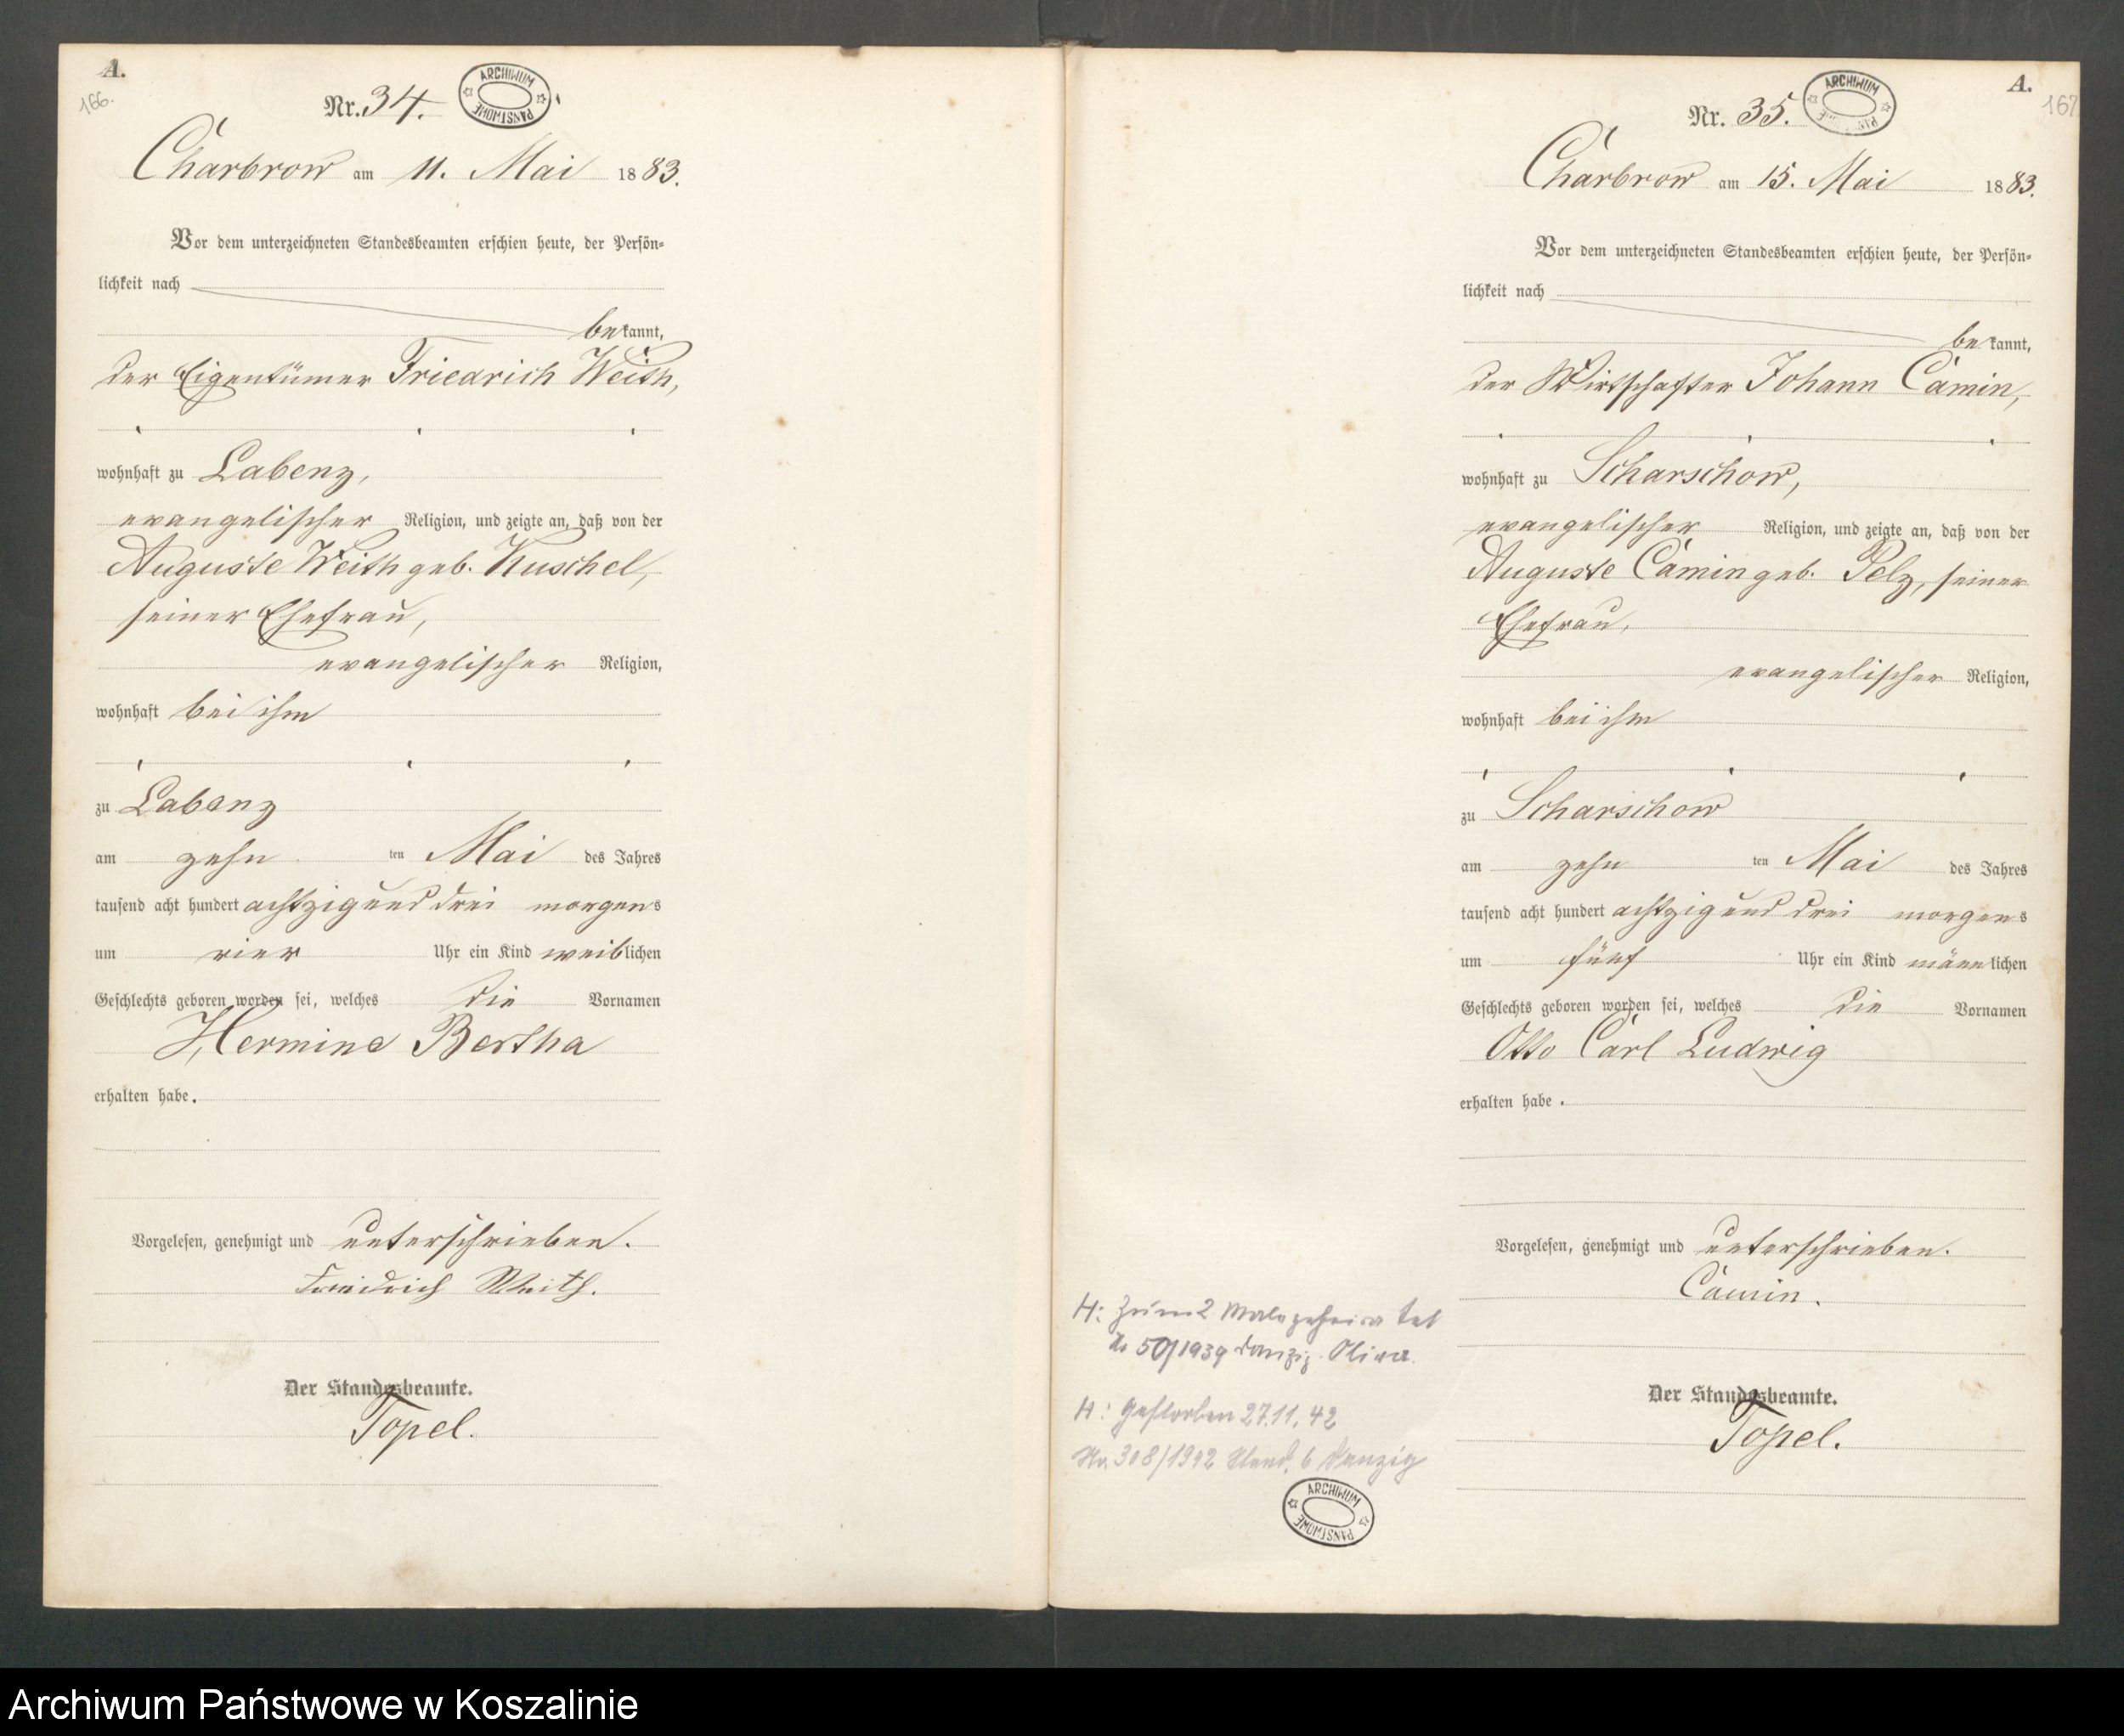 A.
166.
Nr. 34.
ARCHIWUM PAŃSTWOWE
Charbrow am 11. Mai 1883.
Vor dem unterzeichneten Standesbeamten erschien heute, der Persön=
lichkeit nach
bekannt,
der Eigentümer Friedrich Weith,
wohnhaft zu Labenz,
evangelischer Religion, und zeigte an, daß von der
Auguste Weith geb. Kuschel,
seiner Ehefrau,
evangelischer Religion,
wohnhaft bei ihm
zu Labenz
am zehn ten Mai des Jahres
tausend acht hundert achtzig und drei morgens
um vier Uhr ein Kind weiblichen
Geschlechts geboren worden sei, welches die Vornamen
Hermine Bertha
erhalten habe.
Vorgelesen, genehmigt und unterschrieben.
Friedrich Weith.
Der Standesbeamte.
Topel.
A.
167
Nr. 35.
ARCHIWUM PAŃSTWOWE
Charbrow am 15. Mai 1883.
Vor dem unterzeichneten Standesbeamten erschien heute, der Persön=
lichkeit nach
bekannt,
der Wirtschafter Johann Camin,
wohnhaft zu Scharschow,
evangelischer Religion, und zeigte an, daß von der
Auguste Camin geb. Pelz, seiner
Ehefrau,
evangelischer Religion,
wohnhaft bei ihm
zu Scharschow
am zehn ten Mai des Jahres
tausend acht hundert achtzig und drei morgens
um fünf Uhr ein Kind männlichen
Geschlechts geboren worden sei, welches die Vornamen
Otto Carl Ludwig
erhalten habe.
Vorgelesen, genehmigt und unterschrieben.
Camin.
Der Standesbeamte.
Topel.
H: Zum 2. Male geheiratet
50/1939 Danzig-Oliva.
H: gestorben 27.11.42
Nr. 308/1942 Stand. 6 Danzig
ARCHIWUM PAŃSTWOWE
Archiwum Państwowe w Koszalinie